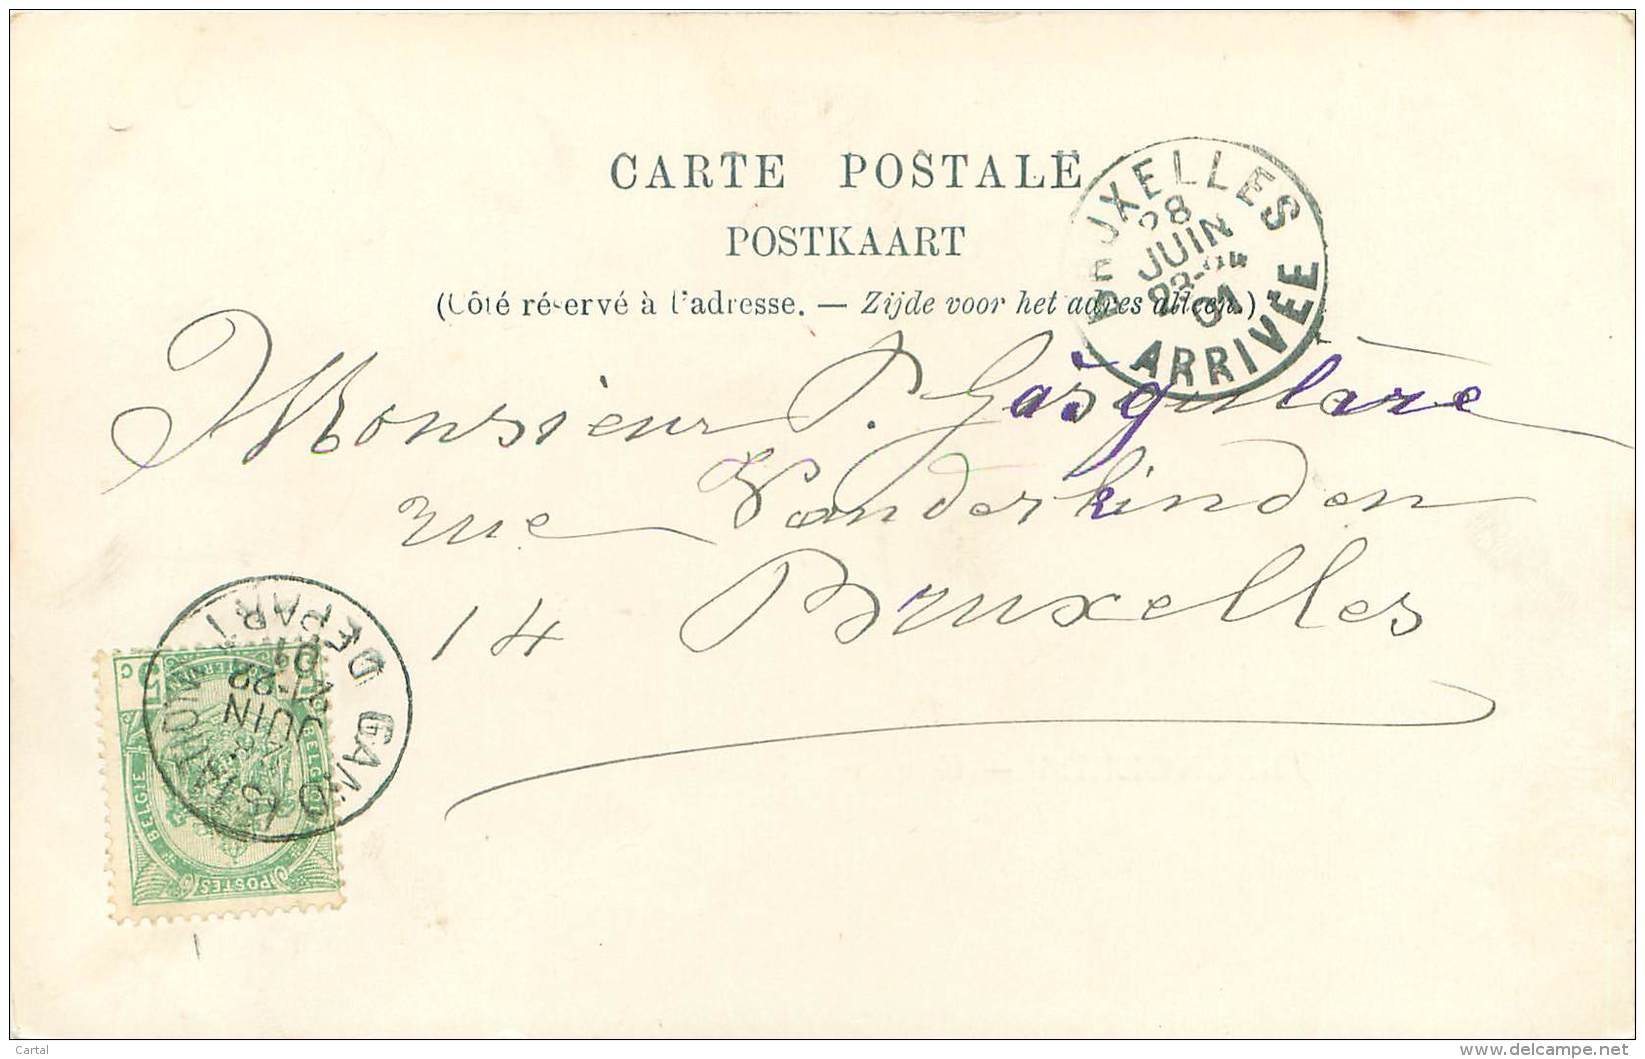 CARTE POSTALE
POSTKAART
(Côté réservé à l'adresse. — Zijde voor het adres alleen.)
BRUXELLES
28
JUIN
23-24
01
ARRIVÉE
Monsieur P.
rue Vanderlinden
14 Bruxelles
GAND (STATION) DEPART
JUIN
01
BELGIQUE
BELGIE
POSTES
Cartal
www.delcampe.net